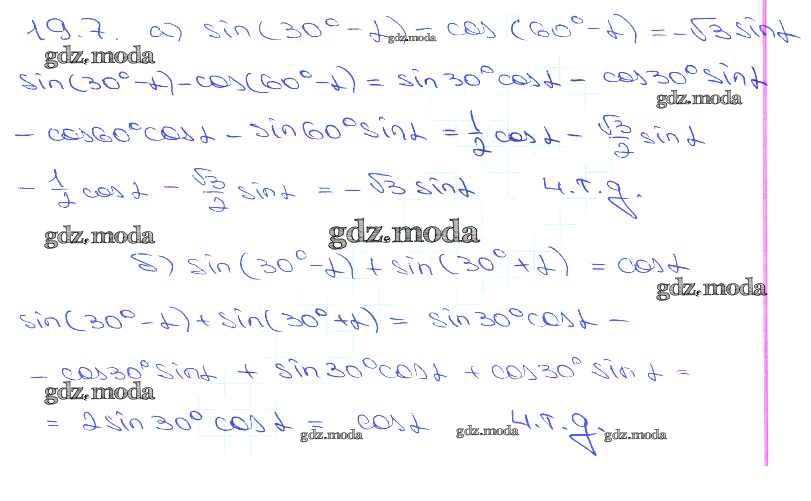 19.7. а) sin(30° - α) - cos(60° - α) = -√3 sinα
gdz.moda
gdz.moda
sin(30° - α) - cos(60° - α) = sin30°cosα - cos30°sinα
gdz.moda
- cos60°cosα - sin60°sinα = 1/2 cosα - √3/2 sinα
- 1/2 cosα - √3/2 sinα = -√3 sinα ч.т.д.
gdz.moda
gdz.moda
б) sin(30° - α) + sin(30° + α) = cosα
gdz.moda
sin(30° - α) + sin(30° + α) = sin30°cosα -
- cos30°sinα + sin30°cosα + cos30° sinα =
gdz.moda
= 2sin30° cosα = cosα ч.т.д.
gdz.moda
gdz.moda
gdz.moda